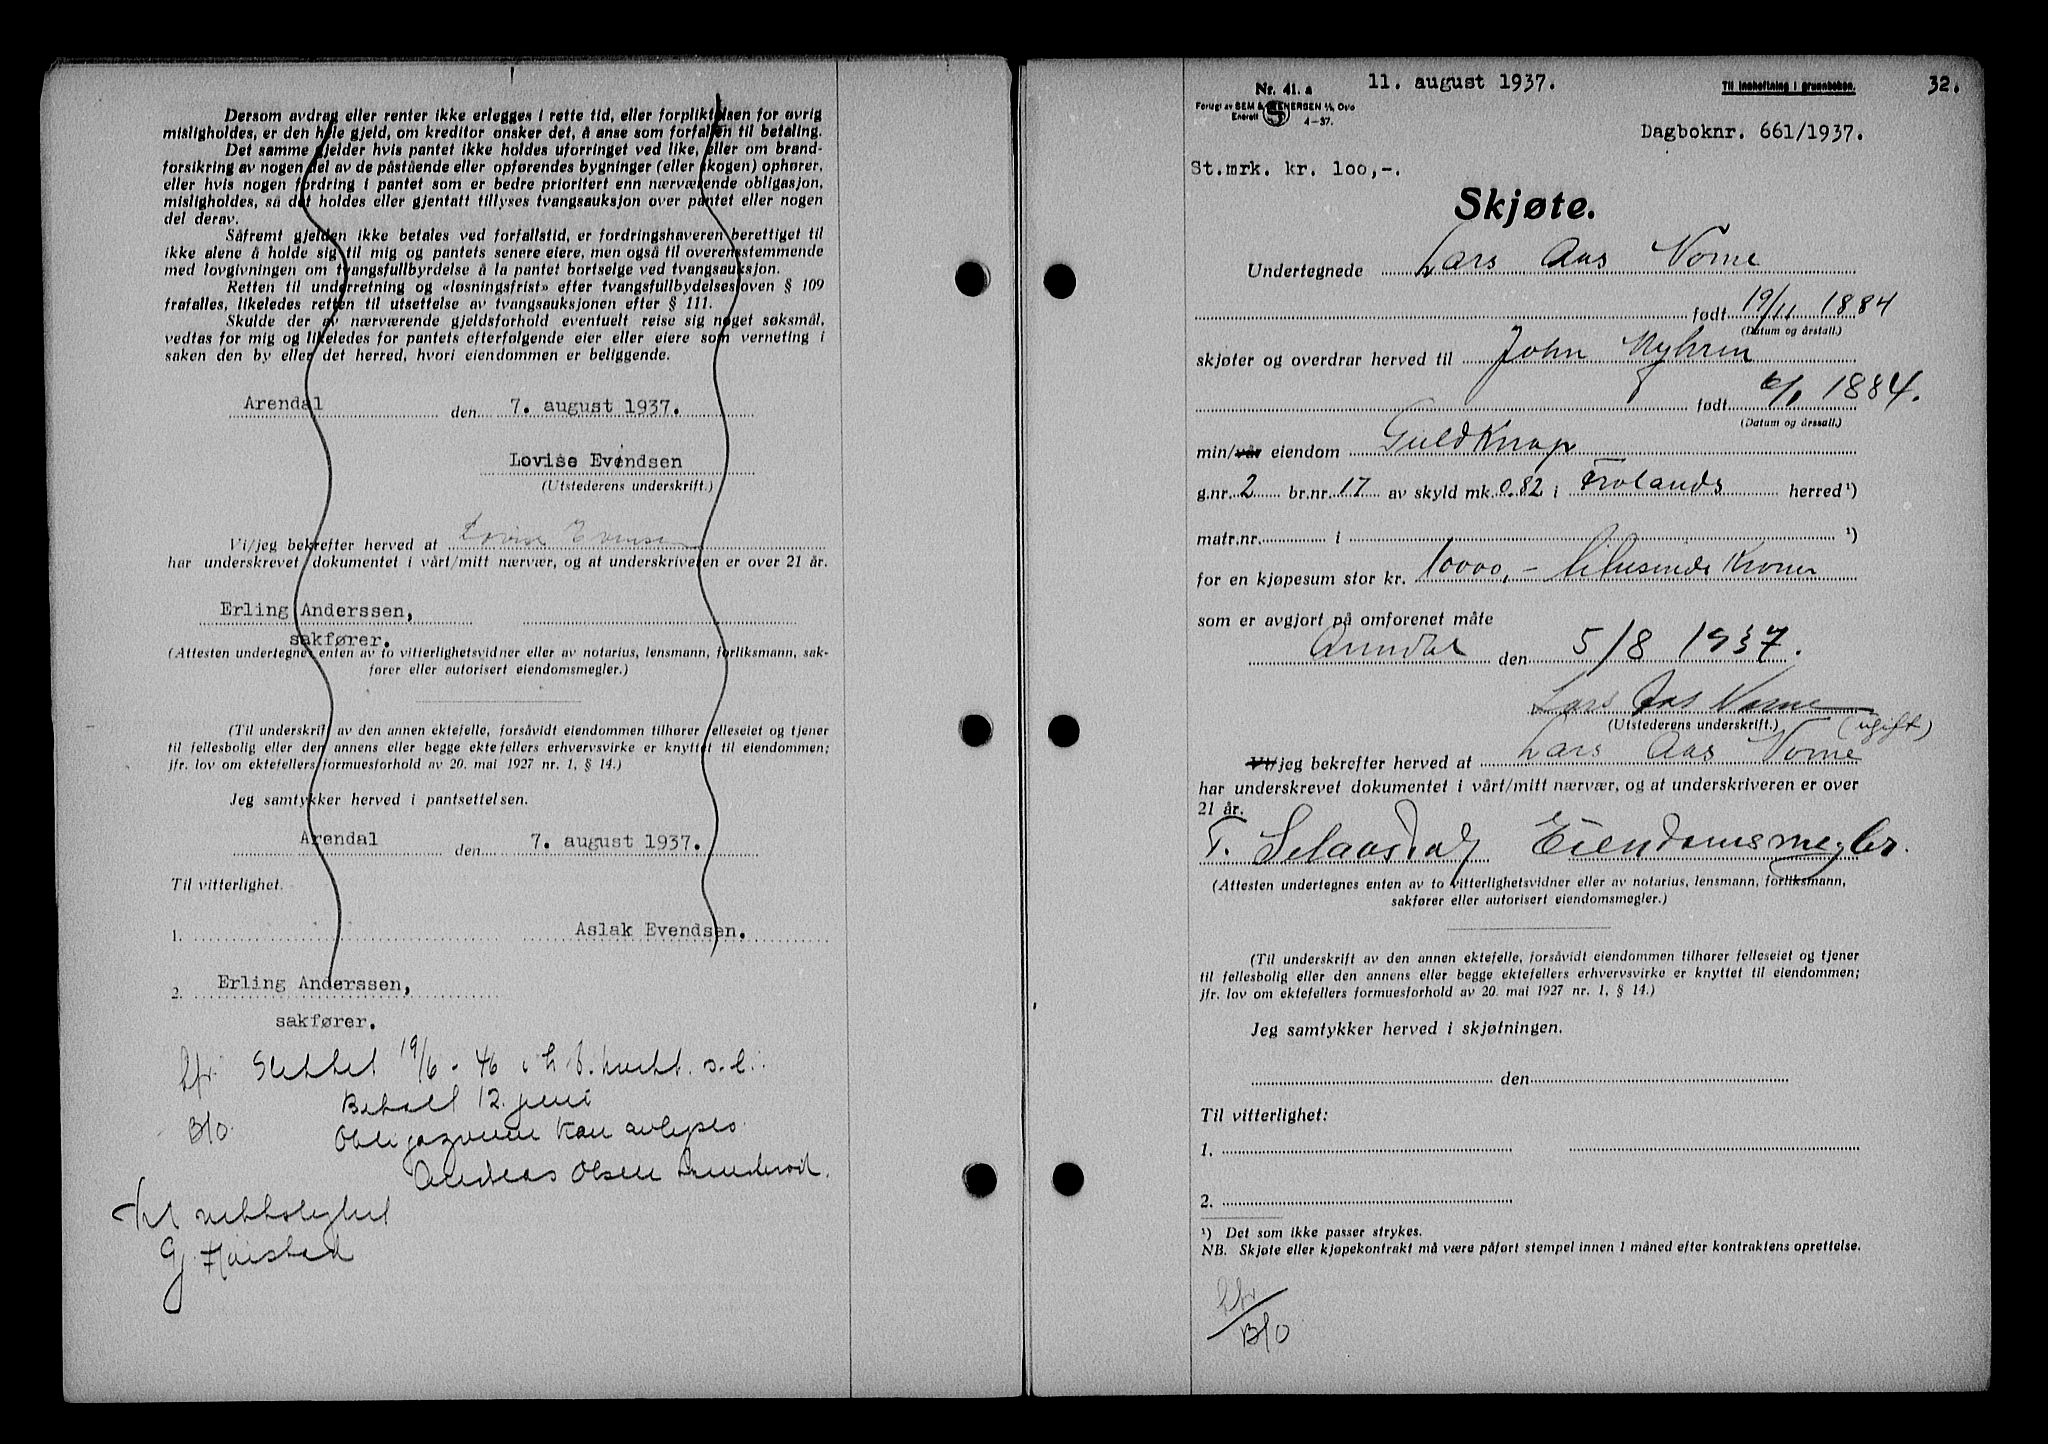 Dersom avdrag eller renter ikke erlegges i rette tid, eller forpliktelsen for øvrig
misligholdes, er den hele gjeld, om kreditor ønsker det, å anse som forfallen til betaling.
Det samme gjelder hvis pantet ikke holdes uforringet ved like, eller om brand-
forsikring av nogen del av de påstående eller opførendes bygninger (eller skogen) ophører,
eller hvis nogen fordring i pantet som er bedre prioritert enn nærværende obligasjon,
misligholdes, så det holdes eller gjentatt tillyses tvangsauksjon over pantet eller nogen
del derav.
Såfremt gjelden ikke betales ved forfallstid, er fordringshaveren berettiget til
ikke alene å holde sig til mig og pantets senere eiere, men også til overensstemmende
med lovgivningen om tvangsfullbyrdelse å la pantet bortselge ved tvangsauksjon.
Retten til underretning og «løsningsfrist» efter tvangsfullbydelsesloven § 109
frafalles, likeledes retten til utsettelse av tvangsauksjonen efter § 111.
Skulde der av nærværende gjeldsforhold eventuelt reise sig noget søksmål,
vedtas for mig og likeledes for pantets efterfølgende eier eller eiere som verneting i
saken den by eller det herred, hvori eiendommen er beliggende.
Arendal den 7. august 1937.
Lovise Evendsen
(Utstederens underskrift.)
Vi/jeg bekrefter herved at Lovise Evensen
har underskrevet dokumentet i vårt/mitt nærvær, og at underskriveren er over 21 år.
Erling Anderssen,
sakfører.
(Attesten undertegnes enten av to vitterlighetsvidner eller av notarius, lensmann, forliksmann, sak-
fører eller autorisert eiendomsmegler.)
(Til underskrift av den annen ektefelle, forsåvidt eiendommen tilhører felleseiet og tjener
til fellesbolig eller den annens eller begge ektefellers erhvervsvirke er knyttet til eiendommen;
jfr. lov om ektefellers formuesforhold av 20. mai 1927 nr. 1, § 14.)
Jeg samtykker herved i pantsettelsen.
Arendal den 7. august 1937.
Til vitterlighet.
1. Aslak Evendsen.
2. Erling Anderssen,
sakfører.
Slettet 19/6-46 i h.t. kvitt. s.l.:
Betalt 12. juni
Bf0. Obligazjonen kan avlyses.
Andreas Olsen
Til vitterlighet
Gj. Høistad
Nr. 41. a
Forlagt av SEM & STENERSEN A/S, Oslo
Enerett S 4-37.
11. august 1937.
Til innheftning i grunnboken.
32.
Dagboknr. 661/1937.
St.mrk. kr. 100,-.
Skjøte.
Undertegnede Lars Aas Nome
født 19/11 1884
(Datum og årstall.)
skjøter og overdrar herved til John Myhren
født 6/1 1884.
(Datum og årstall.)
min/vår eiendom Guldknap
g.nr. 2 br.nr. 17 av skyld mk. 0.82 i Frolands herred ¹)
matr.nr. i ¹)
for en kjøpesum stor kr. 10000,- titusinde Kroner
som er avgjort på omforenet måte
Arendal den 5/8 1937.
Lars Aas Nome
(Utstederens underskrift.) (ugift)
Vi/jeg bekrefter herved at Lars Aas Nome
har underskrevet dokumentet i vårt/mitt nærvær, og at underskriveren er over
21 år.
T. Selaasdal Eiendomsmegler.
(Attesten undertegnes enten av to vitterlighetsvidner eller av notarius, lensmann, forliksmann,
sakfører eller autorisert eiendomsmegler.)
(Til underskrift av den annen ektefelle, forsåvidt eiendommen tilhører felleseiet og tjener
til fellesbolig eller den annens eller begge ektefellers erhvervsvirke er knyttet til eiendommen;
jfr. lov om ektefellers formuesforhold av 20. mai 1927 nr. 1, § 14.)
Jeg samtykker herved i skjøtningen.
den
Til vitterlighet:
1.
2.
¹) Det som ikke passer strykes.
NB. Skjøte eller kjøpekontrakt må være påført stempel innen 1 måned efter kontraktens oprettelse.
Bf0